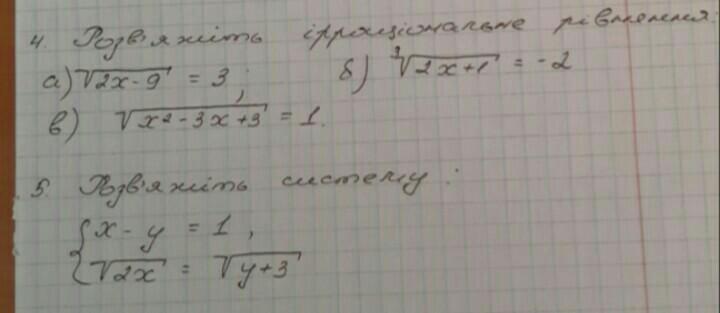 4. Розв'яжіть ірраціональне рівняння:
а) √(2x-9) = 3;   б) ³√(2x+1) = -2
в) √(x²-3x+3) = 1.
5. Розв'яжіть систему:
{ x - y = 1,
√(2x) = √(y+3)